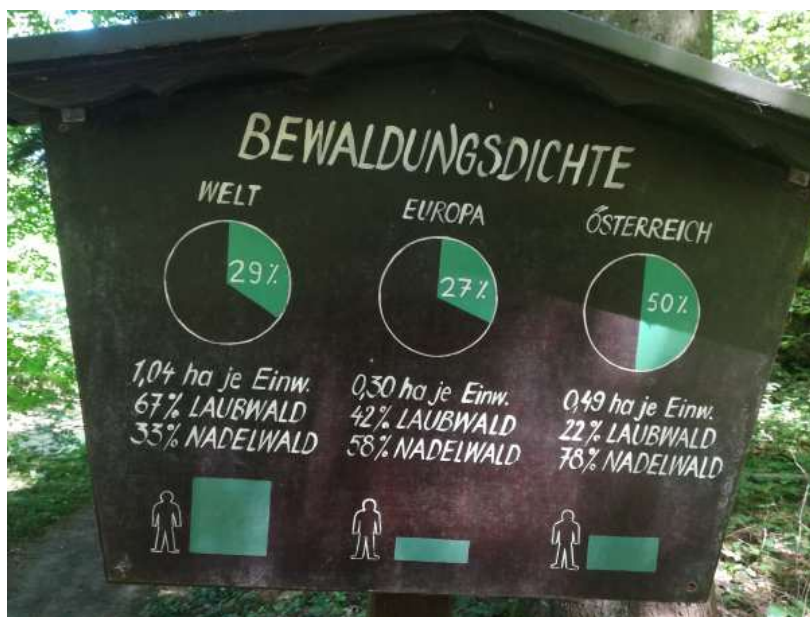 BEWALDUNGSDICHTE
WELT
29%
1,04 ha je Einw.
67% LAUBWALD
33% NADELWALD
EUROPA
27%
0,30 ha je Einw.
42% LAUBWALD
58% NADELWALD
ÖSTERREICH
50%
0,49 ha je Einw.
22% LAUBWALD
78% NADELWALD